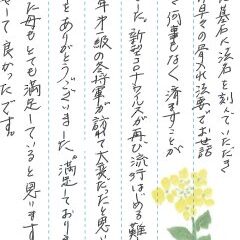 墓石に法名を刻んでいただき
母の骨入れ法要でお世話
何事もなく済ますことが
した。新型コロナウィルスが再び流行はじめる難
年第一級の冬将軍が訪れて大変だったと思い
をありがとうございました。満足しておりま
に母もとても満足していると思います
せて良かったです。